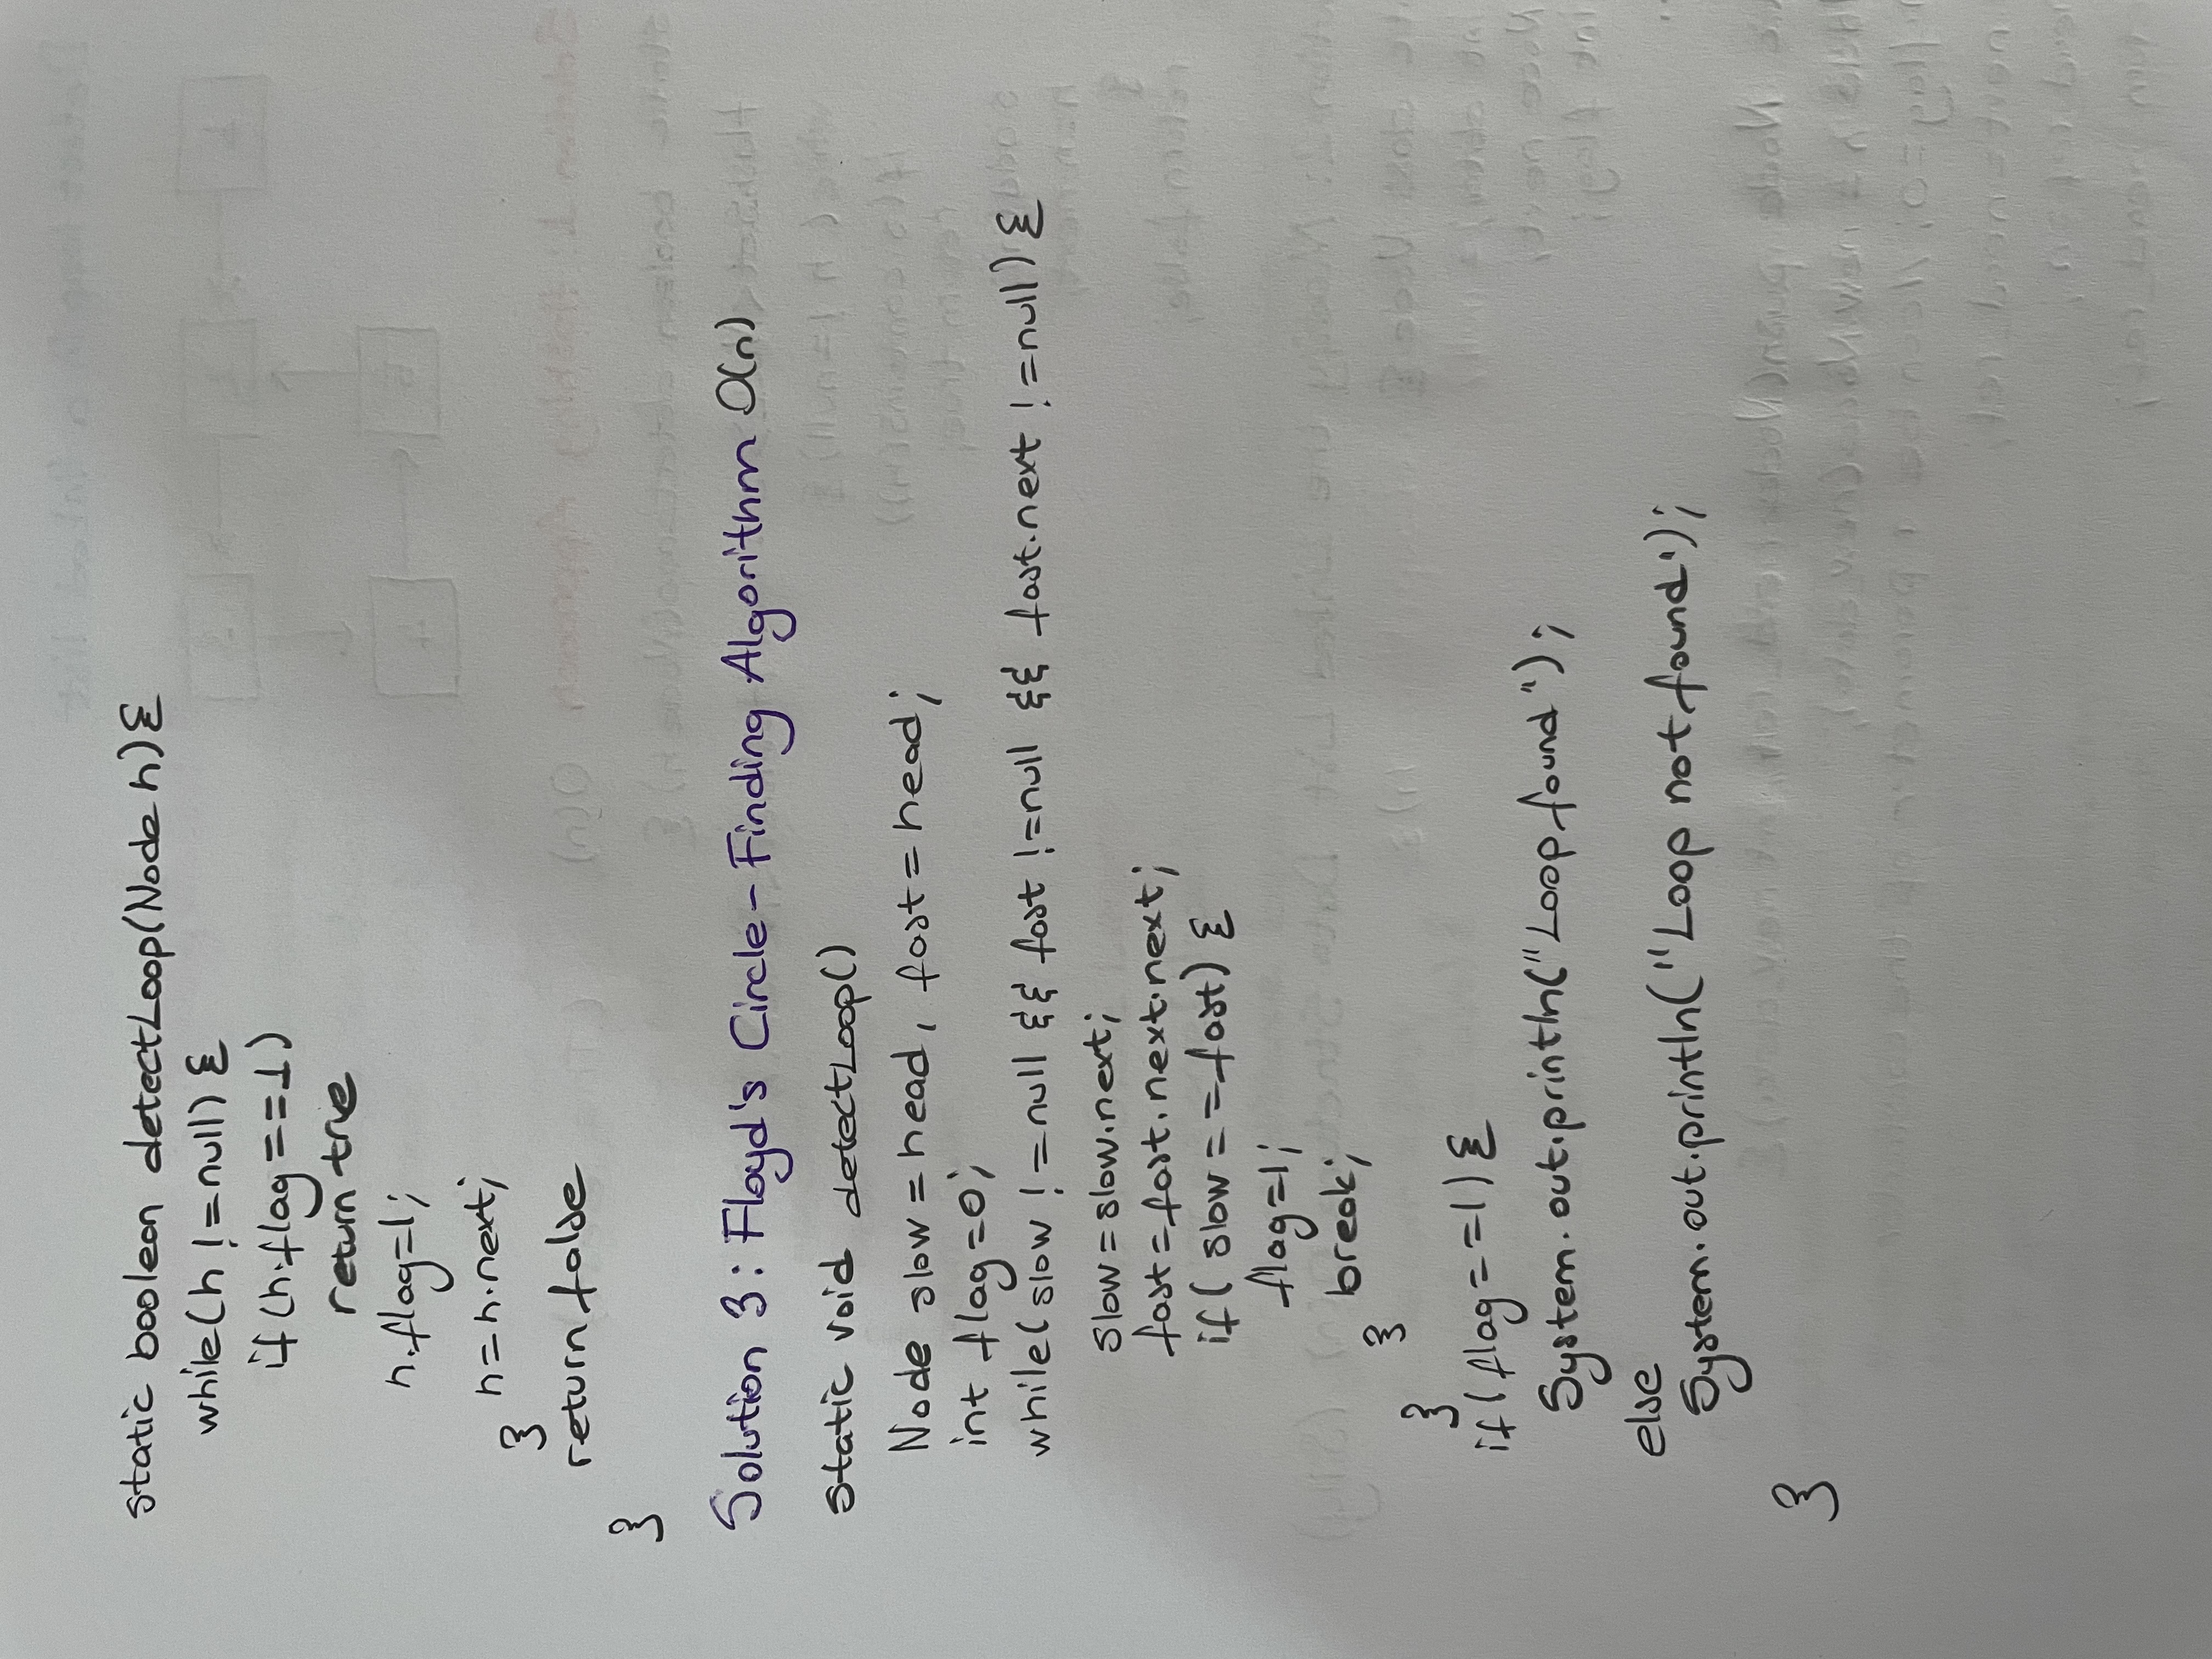 static boolean detectLoop(Node h){
while(h !=null) {
if (h.flag ==1)
return true
h.flag=1;
h=h.next;
}
return false
}
Solution 3: Floyd's Circle-Finding Algorithm O(n)
static void detectLoop()
Node slow = head, fast = head;
int flag=0;
while(slow !=null && fast !=null && fast.next !=null) {
slow=slow.next;
fast=fast.next.next;
if( slow==fast) {
flag=1;
break;
}
}
if(flag==1){
System.out.println("Loop found");
else
System.out.println("Loop not found');
}